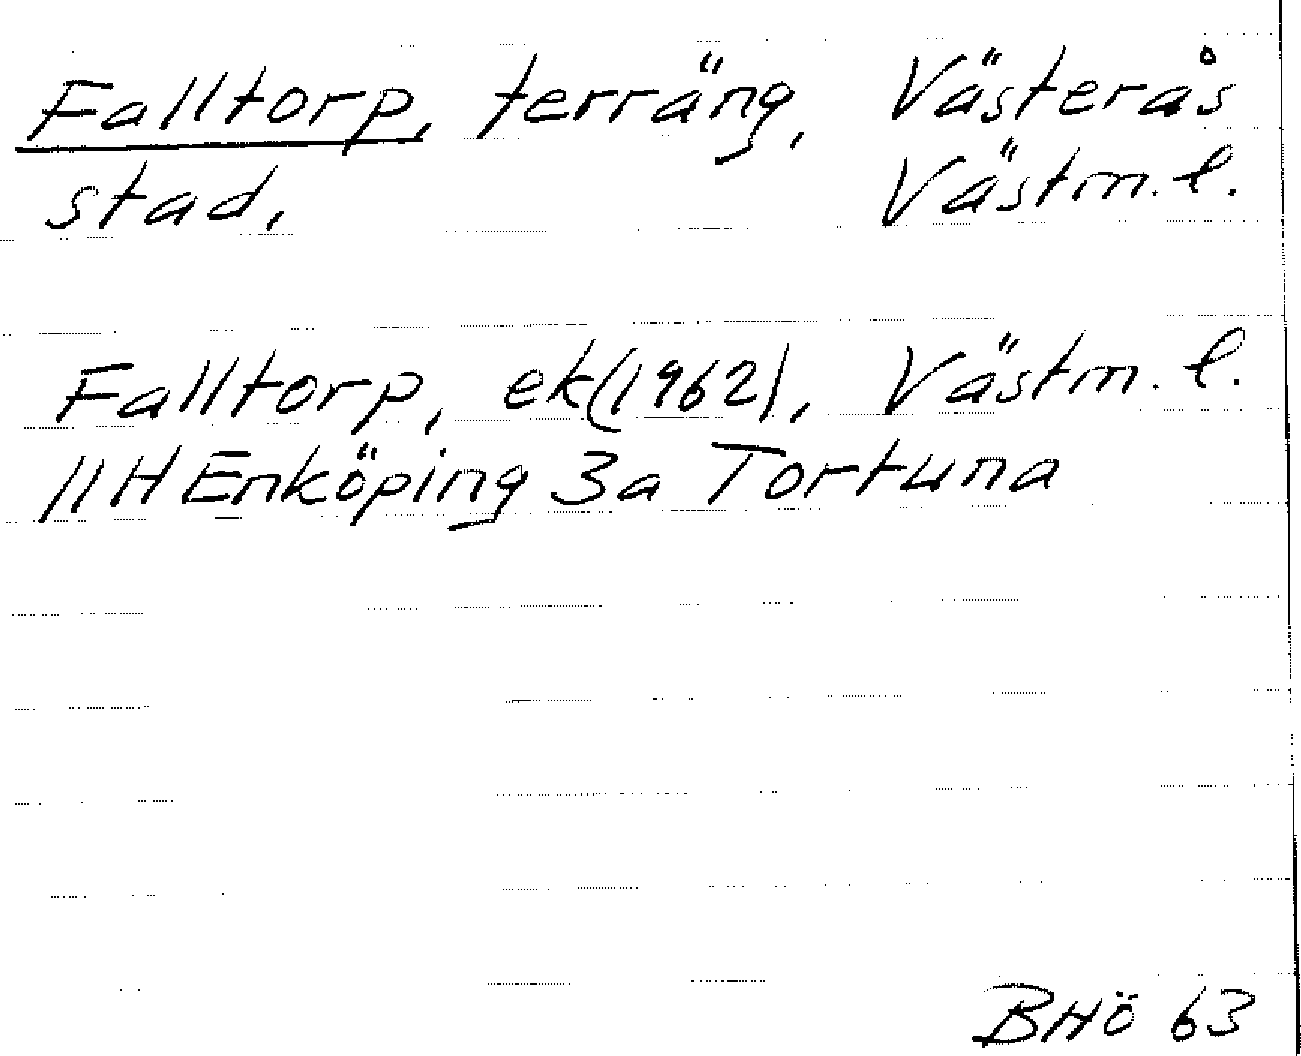 Falltorp, terräng, Västerås
stad, Västm. l.
Falltorp, ek(1962), Västm. l.
11H Enköping 3a Tortuna
BHÖ 63